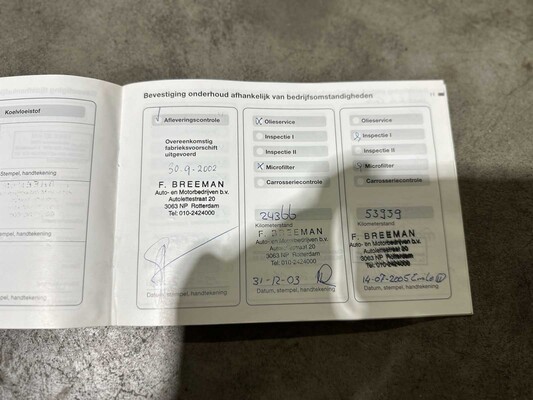 Koelvloeistof
Stempel, handtekening
Datum, stempel, handtekening
Bevestiging onderhoud afhankelijk van bedrijfsomstandigheden
Afleveringscontrole
Overeenkomstig
fabrieksvoorschrift
uitgevoerd
30.9.2002
F. BREEMAN
Auto- en Motorbedrijven b.v.
Autolettestraat 20
3063 NP Rotterdam
Tel: 010-2424000
Datum, stempel, handtekening
X Olieservice
Inspectie I
Inspectie II
X Microfilter
Carrosseriecontrole
24366
Kilometerstand
F. BREEMAN
Auto- en Motorbedrijven b.v.
3063 NP Rotterdam
Tel: 010-2424000
31-12-03
Datum, stempel, handtekening
Olieservice
Inspectie I
Inspectie II
Microfilter
Carrosseriecontrole
53939
Kilometerstand
F. BREEMAN
Auto- en Motorbedrijven b.v.
Autolettestraat 20
3063 NP Rotterdam
Tel: 010-2424000
14-07-2005
Datum, stempel, handtekening